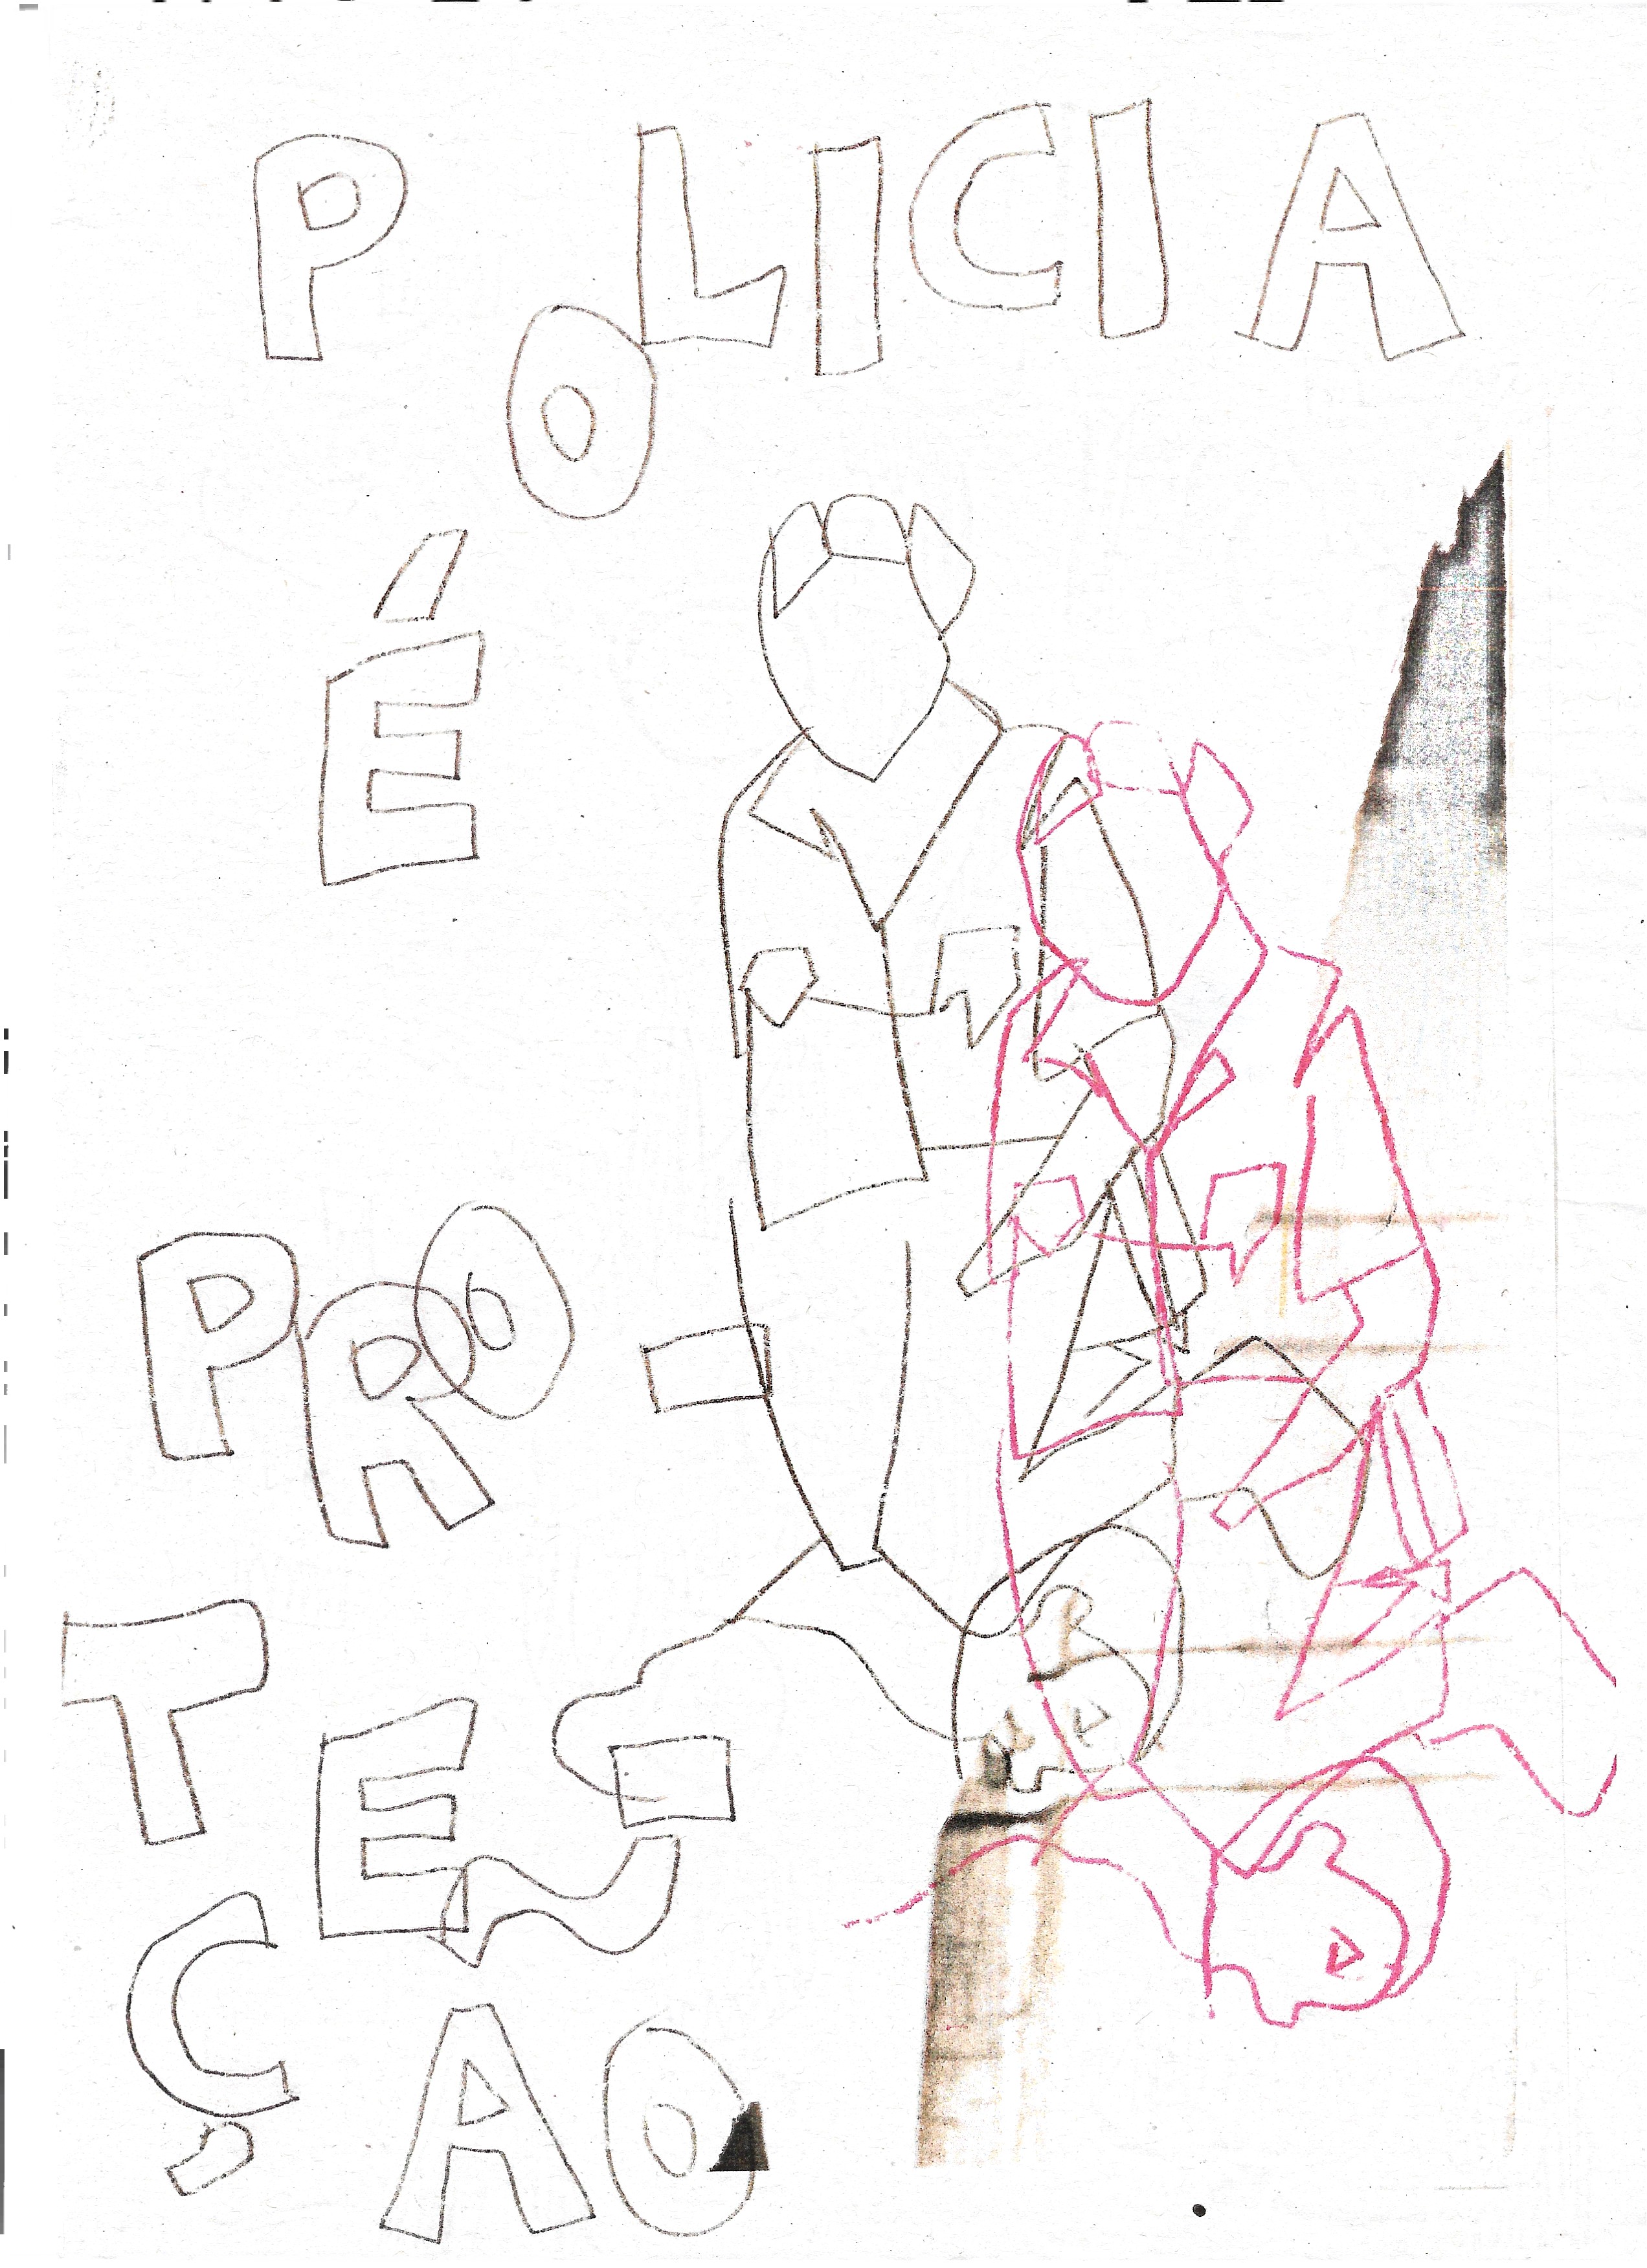 POLICIA
É
PRO
TE
ÇÃO